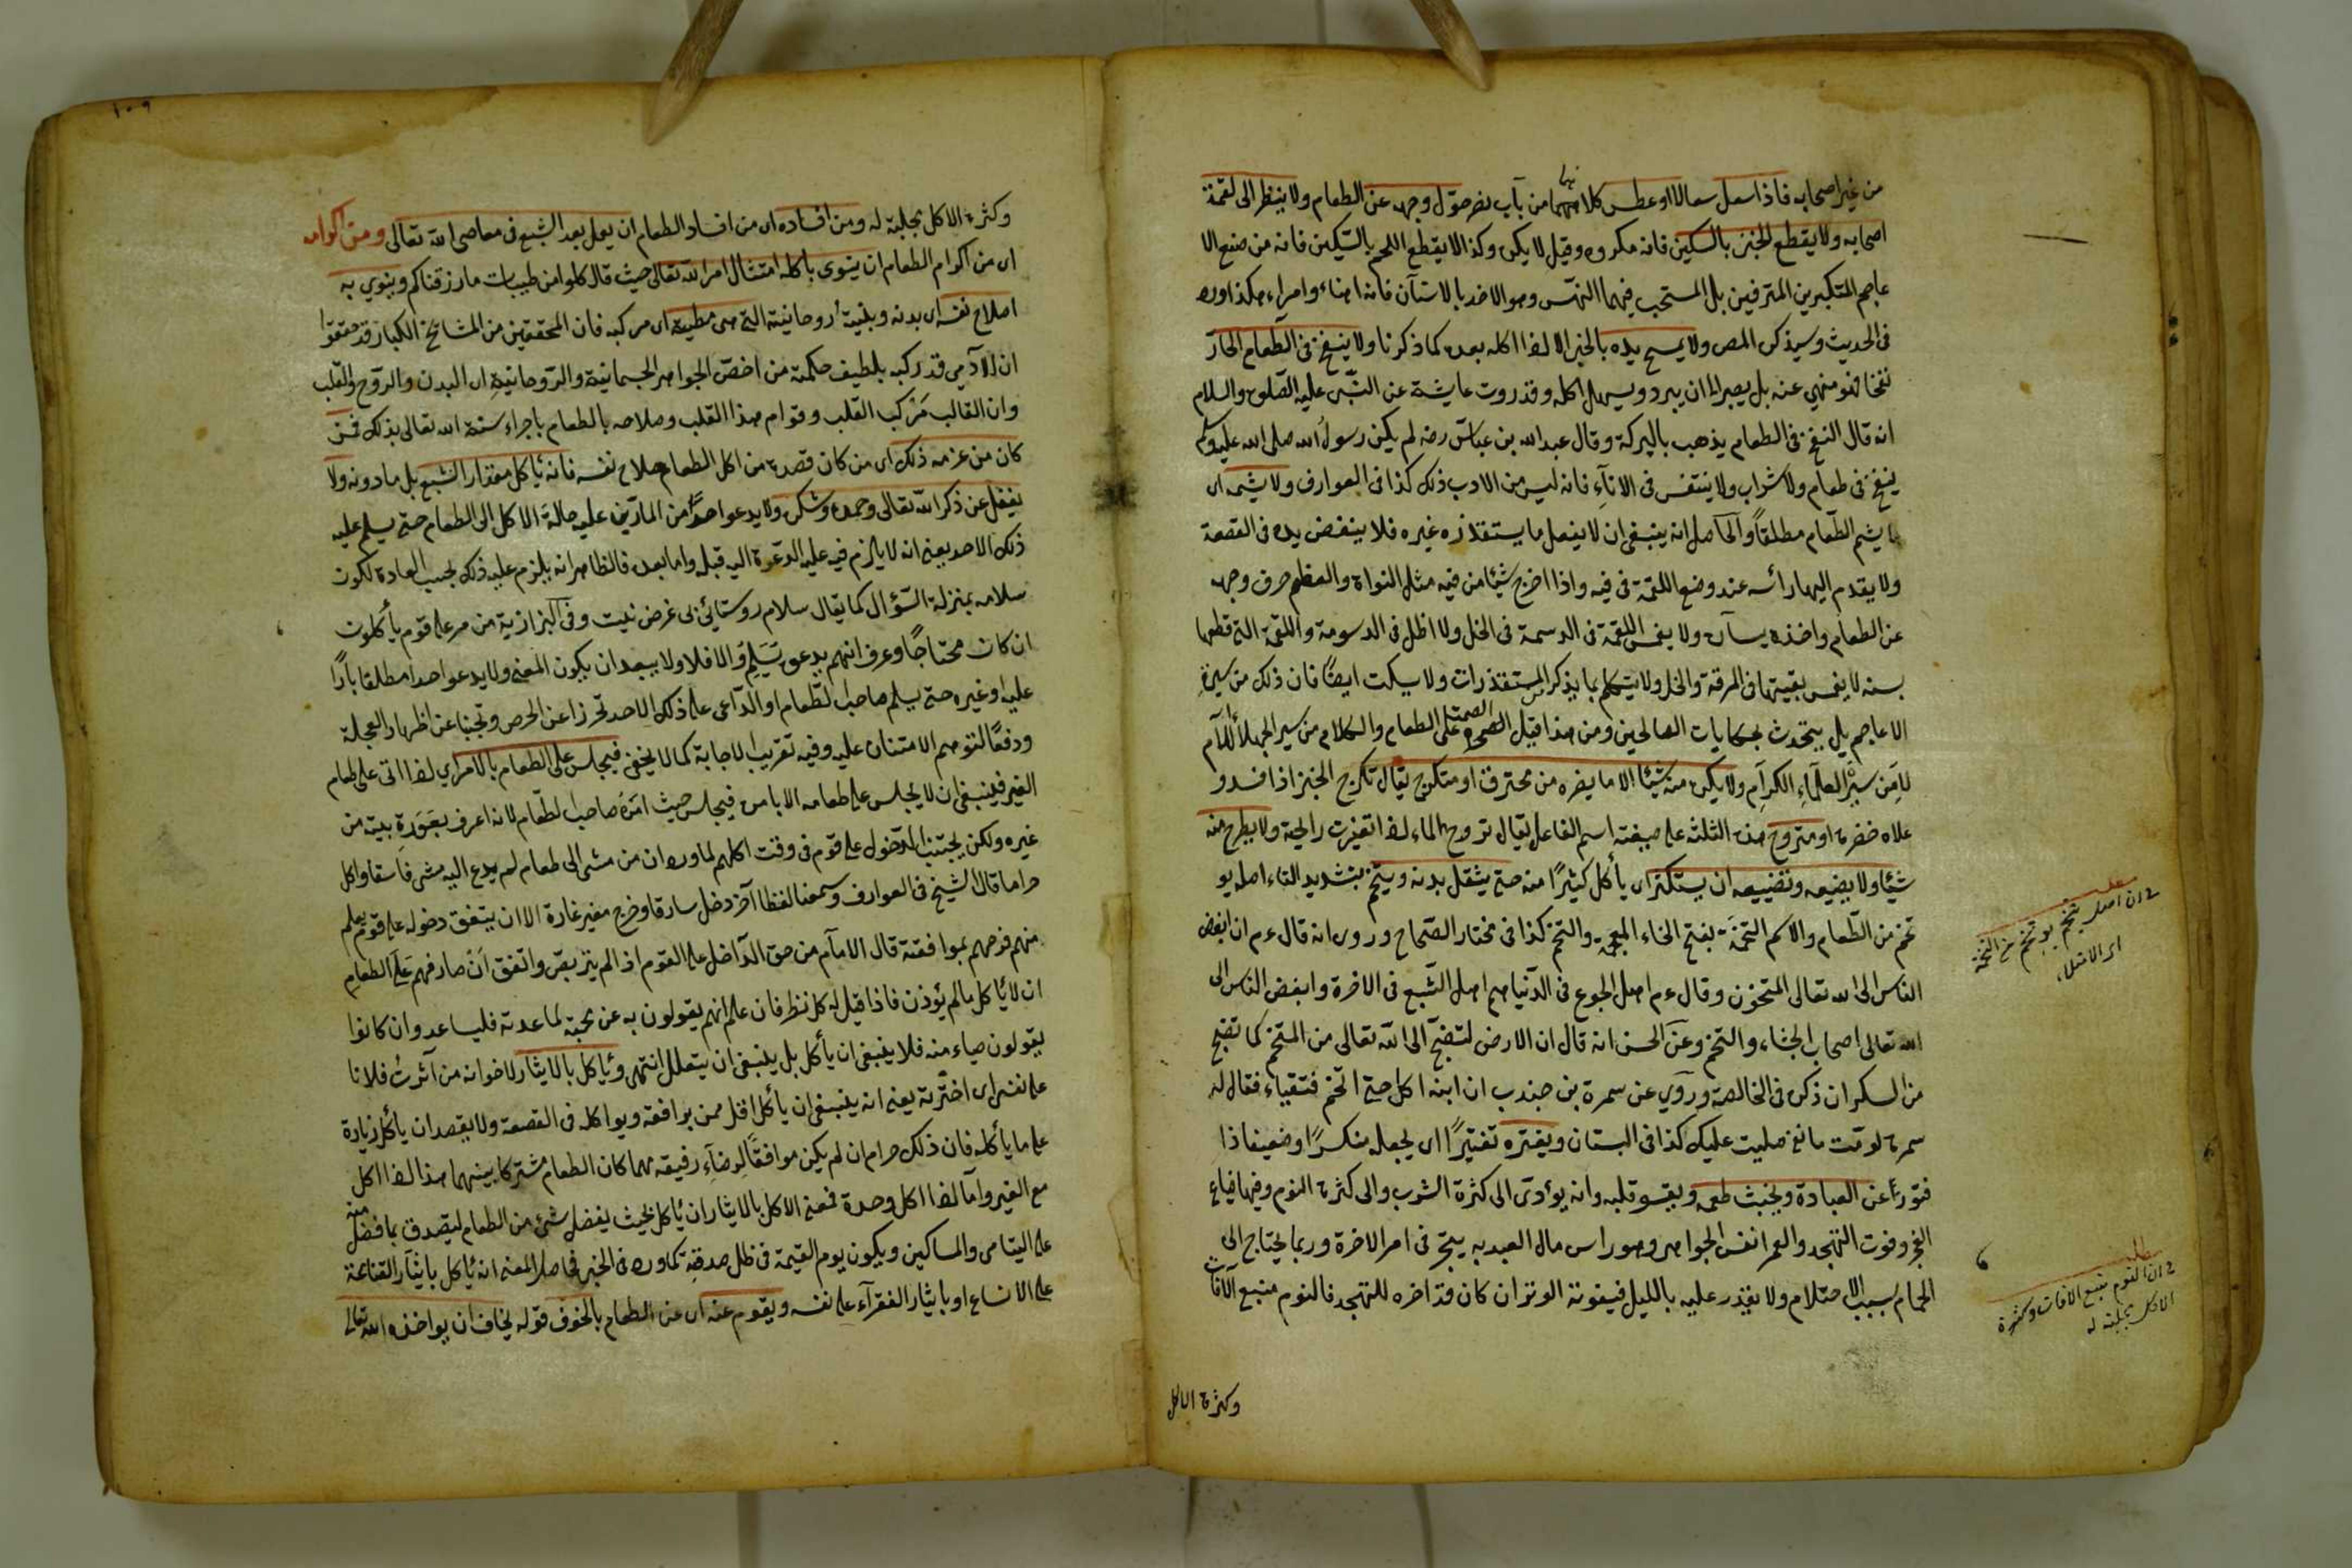 من غير اصحابه فاذا سعل سعالا او عطس كلاهما من باب نصر حوّل وجهه عن الطعام ولا ينظر الى لقمة
اصحابه ولا يقطع الخبز بالسكين فانه مكروه وقيل لا يكره وكذا لا يقطع اللحم بالسكين فانه من صنع الا
عاجم المتكبرين المترفين بل المستحب فيهما النهس وهو الاخذ بالاسنان فانه اهناء وامراء هكذا ورد
فى الحديث وسيذكره المص ولا يمسح يده بالخبز الا اذا اكله بعده كما ذكرنا ولا ينفخ فى الطعام الحارّ
نفخا فهو منهي عنه بل يصبر الى ان يبرد ويسهل اكله وقد روت عايشة عن النبى عليه الصلوة والسلام
انه قال النفخ فى الطعام يذهب بالبركة وقال عبد الله بن عباس رضه لم يكن رسول الله صلى الله عليه وسلم
ينفخ فى طعام ولا شراب ولا يتنفس فى الاناء فانه ليس من الادب ذلك كذا فى العوارف ولا يشمه اى
لا يشم الطعام مطلقا والحاصل انه ينبغى ان لا يفعل ما يستقذره غيره فلا ينفض يده فى القصعة
ولا يقدم اليها رأسه عند وضع اللقمة فى فيه واذا اخرج شيئا من فيه مثل النواة والعظم صرف وجهه
عن الطعام واخذه بيساره ولا يغمس اللقمة الدسمة فى الخل ولا الخل فى الدسومة واللقمة التى قطعها
بسنه لا يغمس بقيتها فى المرقة والخل ولا يتكلم بما يذكر المستقذرات ولا يسكت ايضا فان ذلك من سيرة
الاعاجم بل يتحدث بحكايات الصالحين ومن هذا قيل الصمت على الطعام والكلام من سير الجهلاء اللئام
لا من سير العلماء الكرام ولا يكره منه شيئا الا ما يضره من محترق او متكرج يقال تكرج الخبز اذا فسد و
علاه خضرة او متروح هذه الثلثة على صيغة اسم الفاعل يقال تروح الماء اذا تغيرت رايحة ولا يطرح منه
شيئا ولا يضيعه وتضييعه ان يستكثر اى يأكل كثيرا منه حتى يثقل بدنه ويتخم بتشديد التاء اصله يو
تخم من الطعام والاسم التخمة بفتح الخاء المعجمة والتخم كذا فى مختار الصحاح وروى انه قال ءم ان ابغض
الناس الى الله تعالى المتخون وقال ءم اهل الجوع فى الدنيا هم اهل الشبع فى الاخرة وابغض الناس الى
الله تعالى اصحاب الجشاء والتخم وعن الحسن انه قال ان الارض لتضج الى الله تعالى من المتخم كما تضج
من السكران ذكره فى الخالصة وروي عن سمرة بن جندب ان ابنه اكل حتى اتخم فتقياء فقال له
سمرة لو مت ما صليت عليك كذا فى البستان ويفتره تفتيرا اى يجعله منكسرا وضعيفا ذا
فتور عن العبادة ويخبث طعمه ويقسو قلبه وانه يؤدى الى كثرة الشرب والى كثرة النوم وفيها ضياع
العمر وفوت التهجد والعمر انفس الجواهر وهو راس مال العبد به يتجر فى امر الاخرة وربما يحتاج الى
الحمام بسبب الاحتلام ولا يقدر عليه بالليل فيفوته الوتر ان كان قد اخره للتهجد فالنوم منبع الآفات
وكثرة الاكل
مطلب
فى ان اصل يتخم يوتخم من التخمة
اى الامتلاء
مطلب
فى ان النوم منبع الافات وكثرة
الاكل مجلبة له
١٠٩
وكثرة الاكل مجلبة له ومن افساده اى من افساد الطعام ان يعمل بعد الشبع فى معاصى الله تعالى ومن اكرامه
اى من اكرام الطعام ان ينوى باكله امتثال امر الله تعالى حيث قال كلوا من طيبات ما رزقناكم وينوي به
اصلاح نفسه اى بدنه وبنية روحانيته التى هى مطيته اى مركبه فان المحققين من المشايخ الكبار قد حققوا
ان الآدمى قد ركبه بلطيف حكمته من اخص الجواهر الجسمانية والروحانية اى البدن والروح والقلب
وان القالب مركب القلب وقوام هذا القلب وصلاحه بالطعام باجراء سنة الله تعالى بذلك فمن
كان من عزمه ذلك اى من كان قصده من اكل الطعام صلاح نفسه فانه يأكل مقدار الشبع بل ما دونه ولا
يغفل عن ذكر الله تعالى وحمده وشكره ولا يدعو احدا من المارّين عليه حالة الاكل الى الطعام حتى يسلم عليه
ذلك الاحد يعنى انه لا يلزم فيه عليه الدعوة اليه قبله واما بعده فالظاهر انه يلزم عليه ذلك بحسب العادة لكون
سلامه بمنزلة السؤال كما يقال سلام روستائى بى غرض نيست وفى البزازية من مر على قوم يأكلون
ان كان محتاجا وعرف انهم يدعوه يسلم والا فلا ولا يبعد ان يكون المعنى ولا يدعو احدا مطلقا مارّا
عليه او غيره حتى يسلم صاحب الطعام او الداعى على ذلك الاحد تحرزا عن الحرص وتجنبا عن اظهار العجلة
ودفعا لتوهم الامتنان عليه وفيه تقريب الاجابة كما لا يخفى فيجلس على الطعام بالامر اي اذا اتى على طعام
الغير فينبغى ان لا يجلس على طعامه الا بامره فيجلس حيث امره صاحب الطعام لانه اعرف بعورة بيته من
غيره ولكن يجتنب الدخول على قوم فى وقت اكلهم لما ورد ان من مشى الى طعام لم يدع اليه مشى فاسقا واكل
حراما قال الشيخ فى العوارف وسمعنا لفظا آخر دخل سارقا وخرج مغيرا الا ان يتفق دخوله على قوم يعلم
منهم فرحهم بموافقته قال الامام من حق الداخل على القوم اذا لم يتربص واتفق ان صادفهم على الطعام
ان لا يأكل ما لم يؤذن فاذا قيل له كل نظر فان علم انهم يقولون به عن محبة لمساعدته فليساعد وان كانوا
يقولون حياء منه فلا ينبغى ان يأكل بل ينبغى ان يتعلل انتهى ويأكل بالايثار لاخوانه من آثرت فلانا
على نفسى اى اخترته يعنى انه ينبغى ان يأكل اقل ممن يوافقه ويواكله فى القصعة ولا يقصد ان يأكل زيادة
على ما يأكله فان ذلك حرام ان لم يكن موافقا لرضاء رفيقه مهما كان الطعام مشتركا بينهما هذا اذا اكل
مع الغير واما اذا اكل وحده فمعنى الاكل بالايثار ان يأكل بحيث يفضل شئ من الطعام ليتصدق بما فضل منه
على اليتامى والمساكين ويكون يوم القيمة فى ظل صدقته كما ورد فى الخبر فحاصل المعنى انه يأكل بايثار القناعة
على الاتساع او بايثار الفقراء على نفسه ويقوم عنه اى عن الطعام بالخوف قوله يخاف ان يواخذه الله تعالى